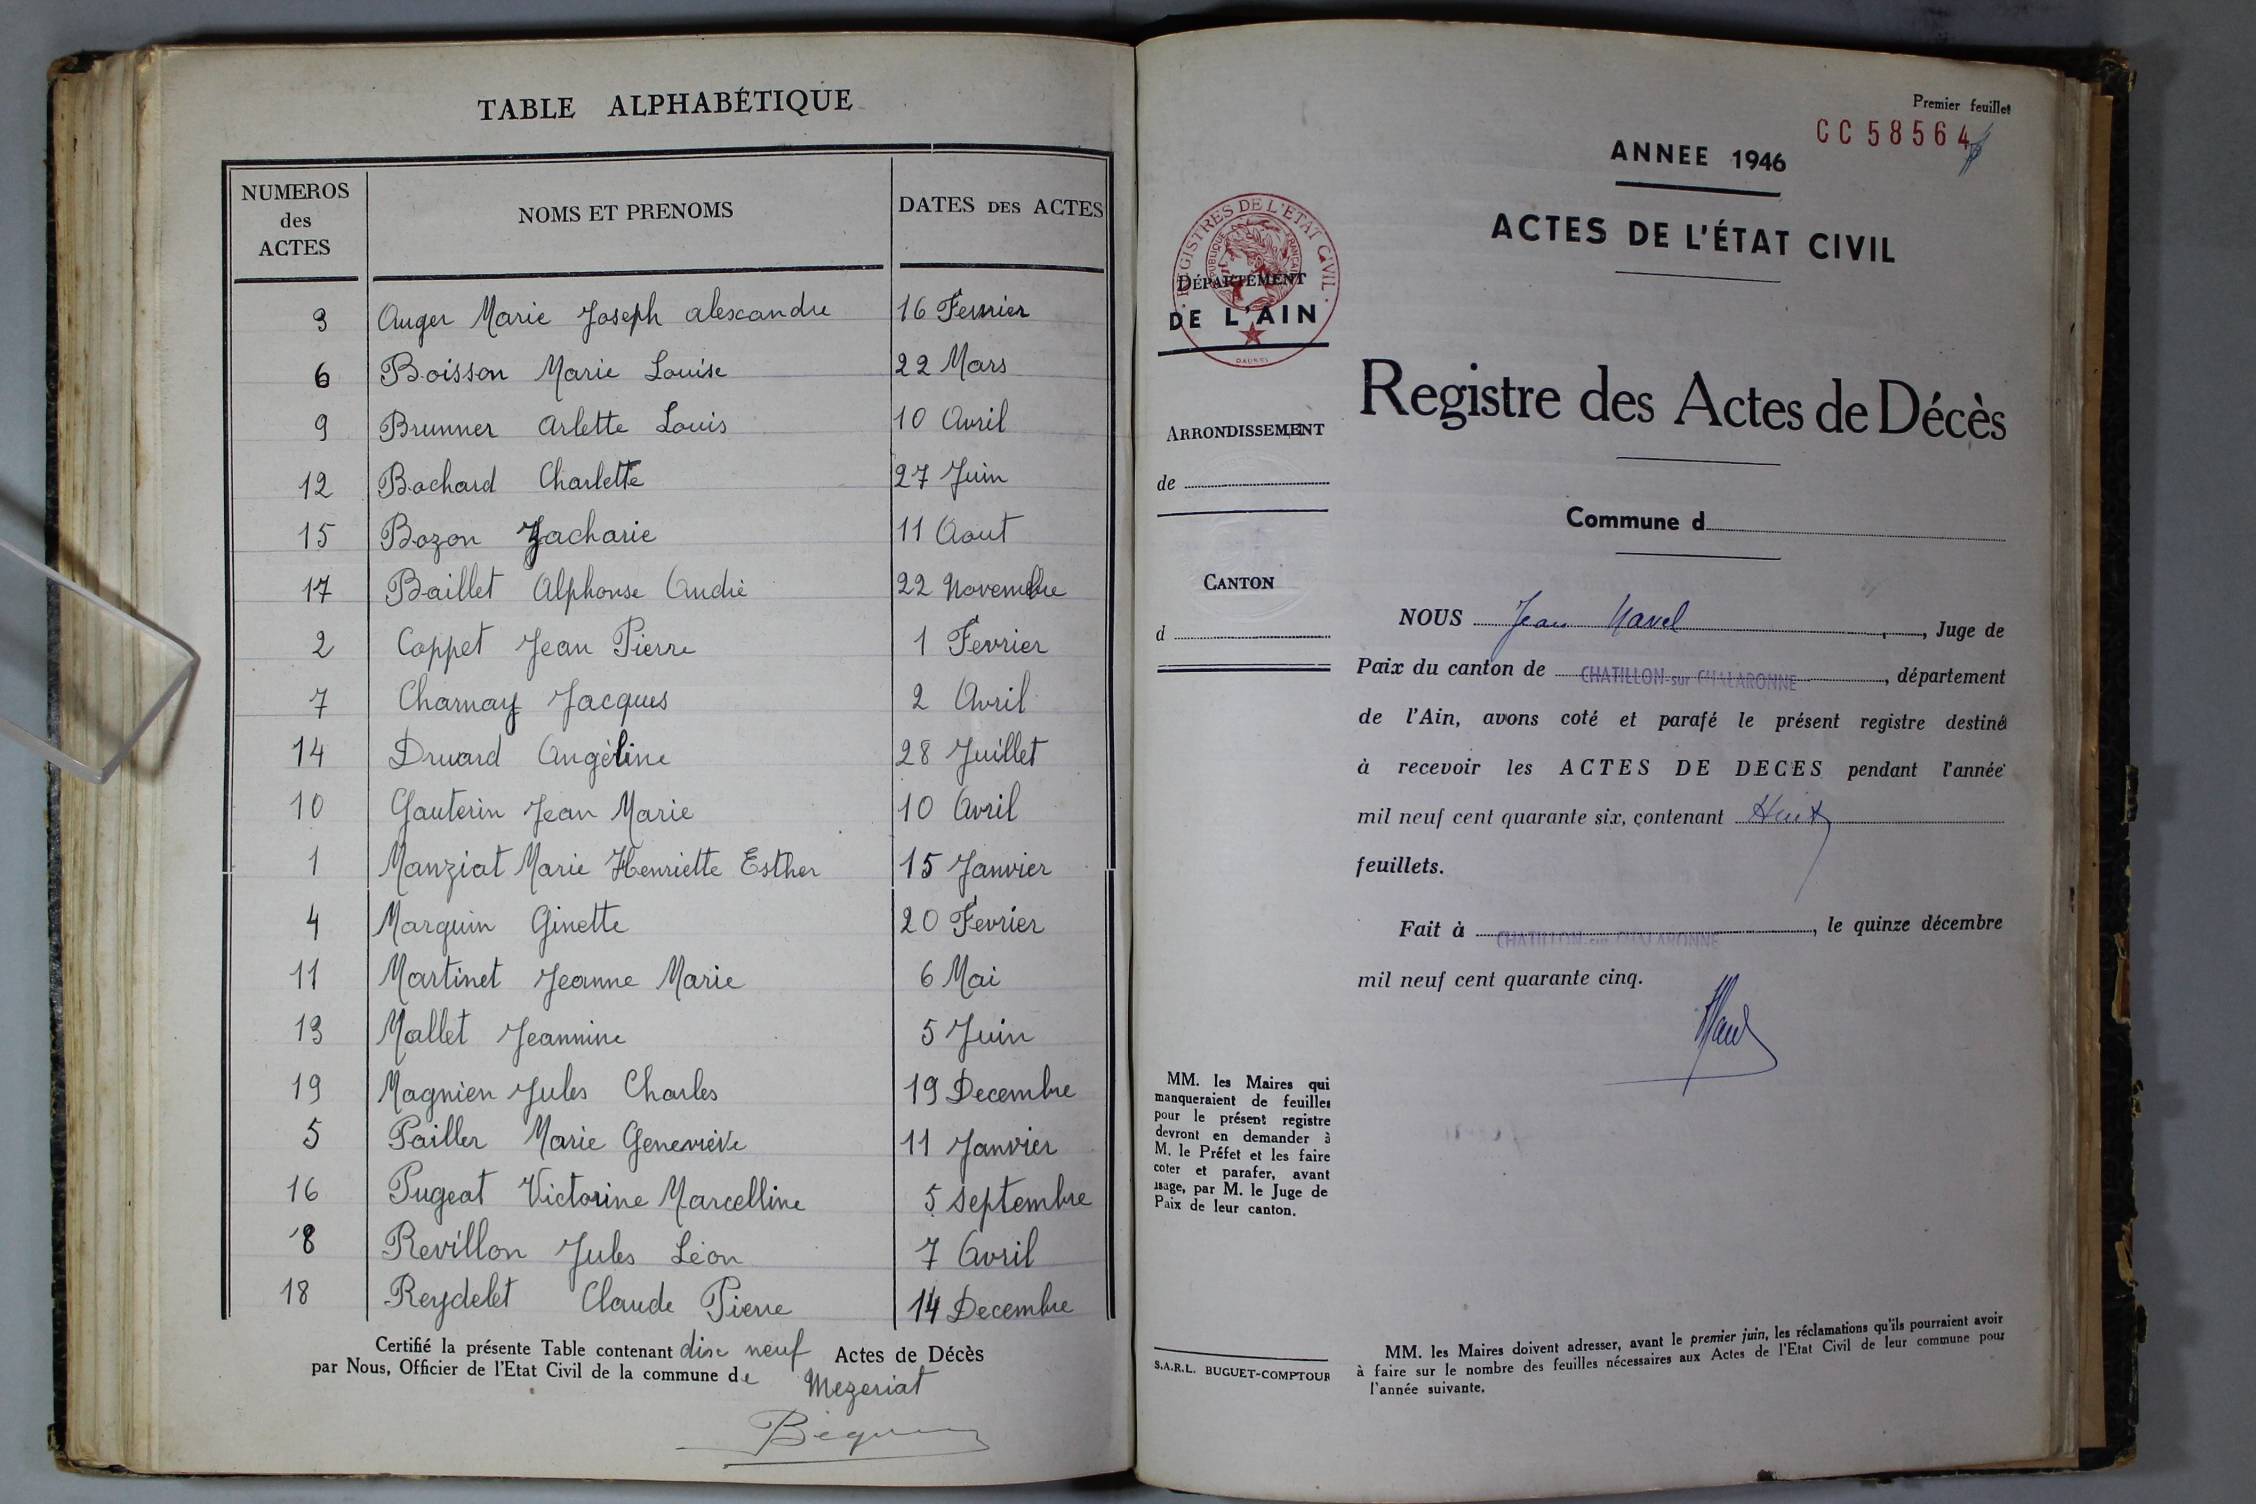 TABLE ALPHABÉTIQUE
NUMEROS des ACTES NOMS ET PRENOMS DATES DES ACTES
3 Auger Marie Joseph alexandre 16 Fevrier
6 Boisson Marie Louise 22 Mars
9 Brunner Arlette Louis 10 Avril
12 Bochard Charlette 27 Juin
15 Bozon Zacharie 11 Aout
17 Baillet Alphonse André 22 Novembre
2 Coppet Jean Pierre 1 Fevrier
7 Charnay Jacques 2 Avril
14 Druard Angéline 28 Juillet
10 Gauterin Jean Marie 10 Avril
1 Manziat Marie Henriette Esther 15 Janvier
4 Marguin Ginette 20 Fevrier
11 Martinet Jeanne Marie 6 Mai
13 Mallet Jeannine 5 Juin
19 Magnien Jules Charles 19 Decembre
5 Pailler Marie Geneviève 11 Janvier
16 Pugeat Victorine Marcelline 5 Septembre
8 Revillon Jules Léon 7 Avril
18 Reydelet Claude Pierre 14 Decembre
Certifié la présente Table contenant dix neuf Actes de Décès
par Nous, Officier de l'Etat Civil de la commune de Mezeriat
Premier feuillet
CC58564
ANNEE 1946
ACTES DE L'ÉTAT CIVIL
REGISTRES DE L'ETAT CIVIL
REPUBLIQUE FRANÇAISE
DÉPARTEMENT
DE L'AIN
Registre des Actes de Décès
ARRONDISSEMENT
de
Commune d
CANTON
d
NOUS Jean Navel, Juge de
Paix du canton de CHATILLON-sur CHALARONNE, département
de l'Ain, avons coté et parafé le présent registre destiné
à recevoir les ACTES DE DECES pendant l'année
mil neuf cent quarante six, contenant Huit
feuillets.
Fait à CHATILLON-sur CHALARONNE, le quinze décembre
mil neuf cent quarante cinq.
MM. les Maires qui
manqueraient de feuilles
pour le présent registre
devront en demander à
M. le Préfet et les faire
coter et parafer, avant
usage, par M. le Juge de
Paix de leur canton.
S.A.R.L. BUGUET-COMPTOUR
MM. les Maires doivent adresser, avant le premier juin, les réclamations qu'ils pourraient avoir
à faire sur le nombre des feuilles nécessaires aux Actes de l'Etat Civil de leur commune pour
l'année suivante.